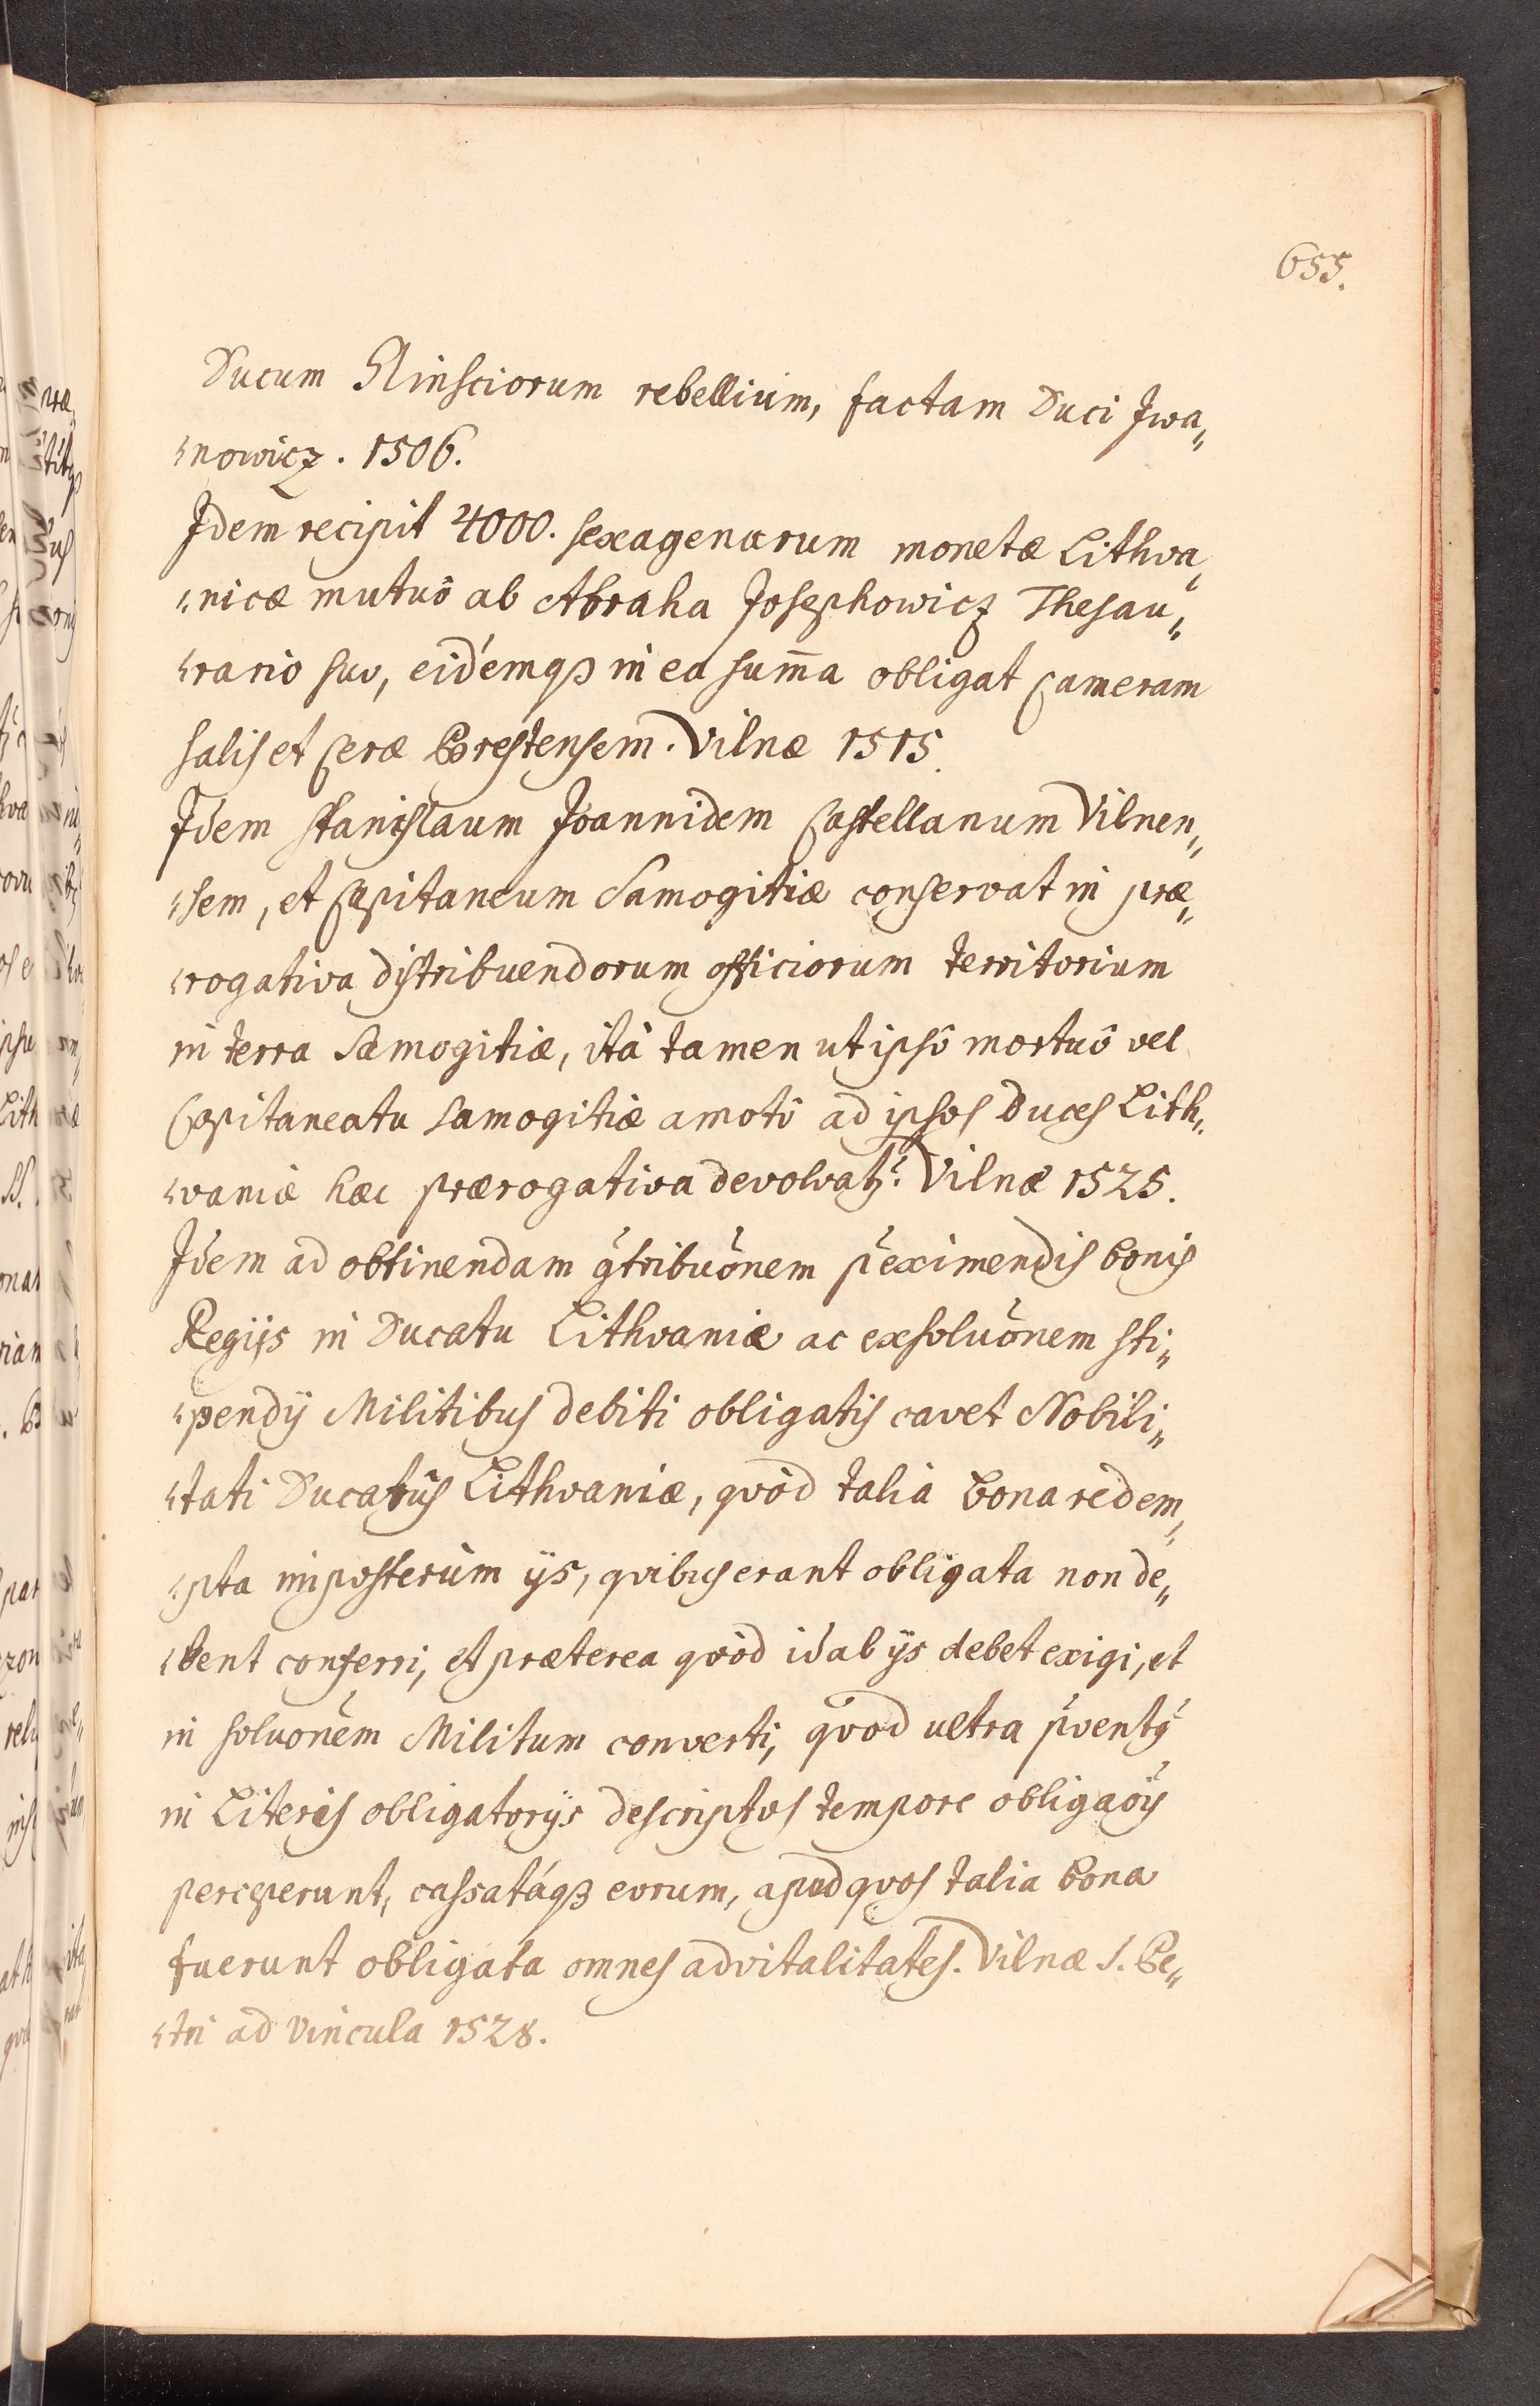 655.
Ducum Glinsciorum rebellium, factam Duci Iwa„
„nowicz. 1506.
Idem recipit 4000. sexagenarum monetæ Lithva„
„nicæ mutuô ab Abraha Josephowicz Thesau„
„rario suo, eidémqꝫ in ea sum̄a obligat Cameram
salis et Ceræ Brestensem. Vilnæ 1515.
Idem Stanislaum Joannidem Castellanum Vilnen„
„sem, et Capitaneum Samogitiæ conservat in præ„
„rogativa distribuendorum officiorum territorium
in terra Samogitiæ, ità tamen ut ipsô mortuô vel
Capitaneatu Samogitiæ amotô ad ipsos Duces Lith„
„vaniæ hæc prærogativa devolvatr̃. Vilnæ 1525.
Idem ad obtinendam g̃tribuõnem p̃ eximendis bonis
Regijs in Ducatu Lithvaniæ ac exsoluõnem sti„
„pendij Militibus debiti obligatis cavet Nobili„
„tati Ducatûs Lithvaniæ, qvòd talia bona redem„
„pta imposterùm ijs, qvibus erant obligata non de„
„bent conferri, et præterea qvòd id ab ijs debet exigi, et
in soluõnem Militum converti, qvod ultra p̃vent9
in Literis obligatorijs descriptos tempore obligaõis
perceperunt, cassatáqꝫ eorum, apud qvos talia bona
fuerunt obligata omnes advitalitates. Vilnæ S. Pe„
„tri ad Vincula 1528.